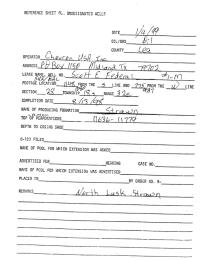 REFERENCE SHEET FOR UNDESIGNATED WELLS
DATE 1/6/99
COUNTY Lea
OPERATOR Chevron USA Inc
ADDRESS PO Box 1150 Midland Tx 79702
LEASE NAME, WELL NO. Scott E Federal #1-M
FOOTAGE LOCATION FROM THE S LINE AND FROM THE W LINE
SECTION 28 TOWNSHIP 18s RANGE 32e
COMPLETION DATE 8/13/98
NAME OF PRODUCING FORMATION Strawn
TOP OF PERFORATIONS 11696-11779
DEPTH TO CASING SHOE
C-123 FILED
NAME OF POOL FOR WHICH EXTENSION WAS ASKED
ADVERTISED FOR HEARING CASE NO.
NAME OF POOL FOR WHICH EXTENSION WAS ADVERTISED
PLACED IN BY ORDER NO. R-
REMARKS North Lusk Strawn